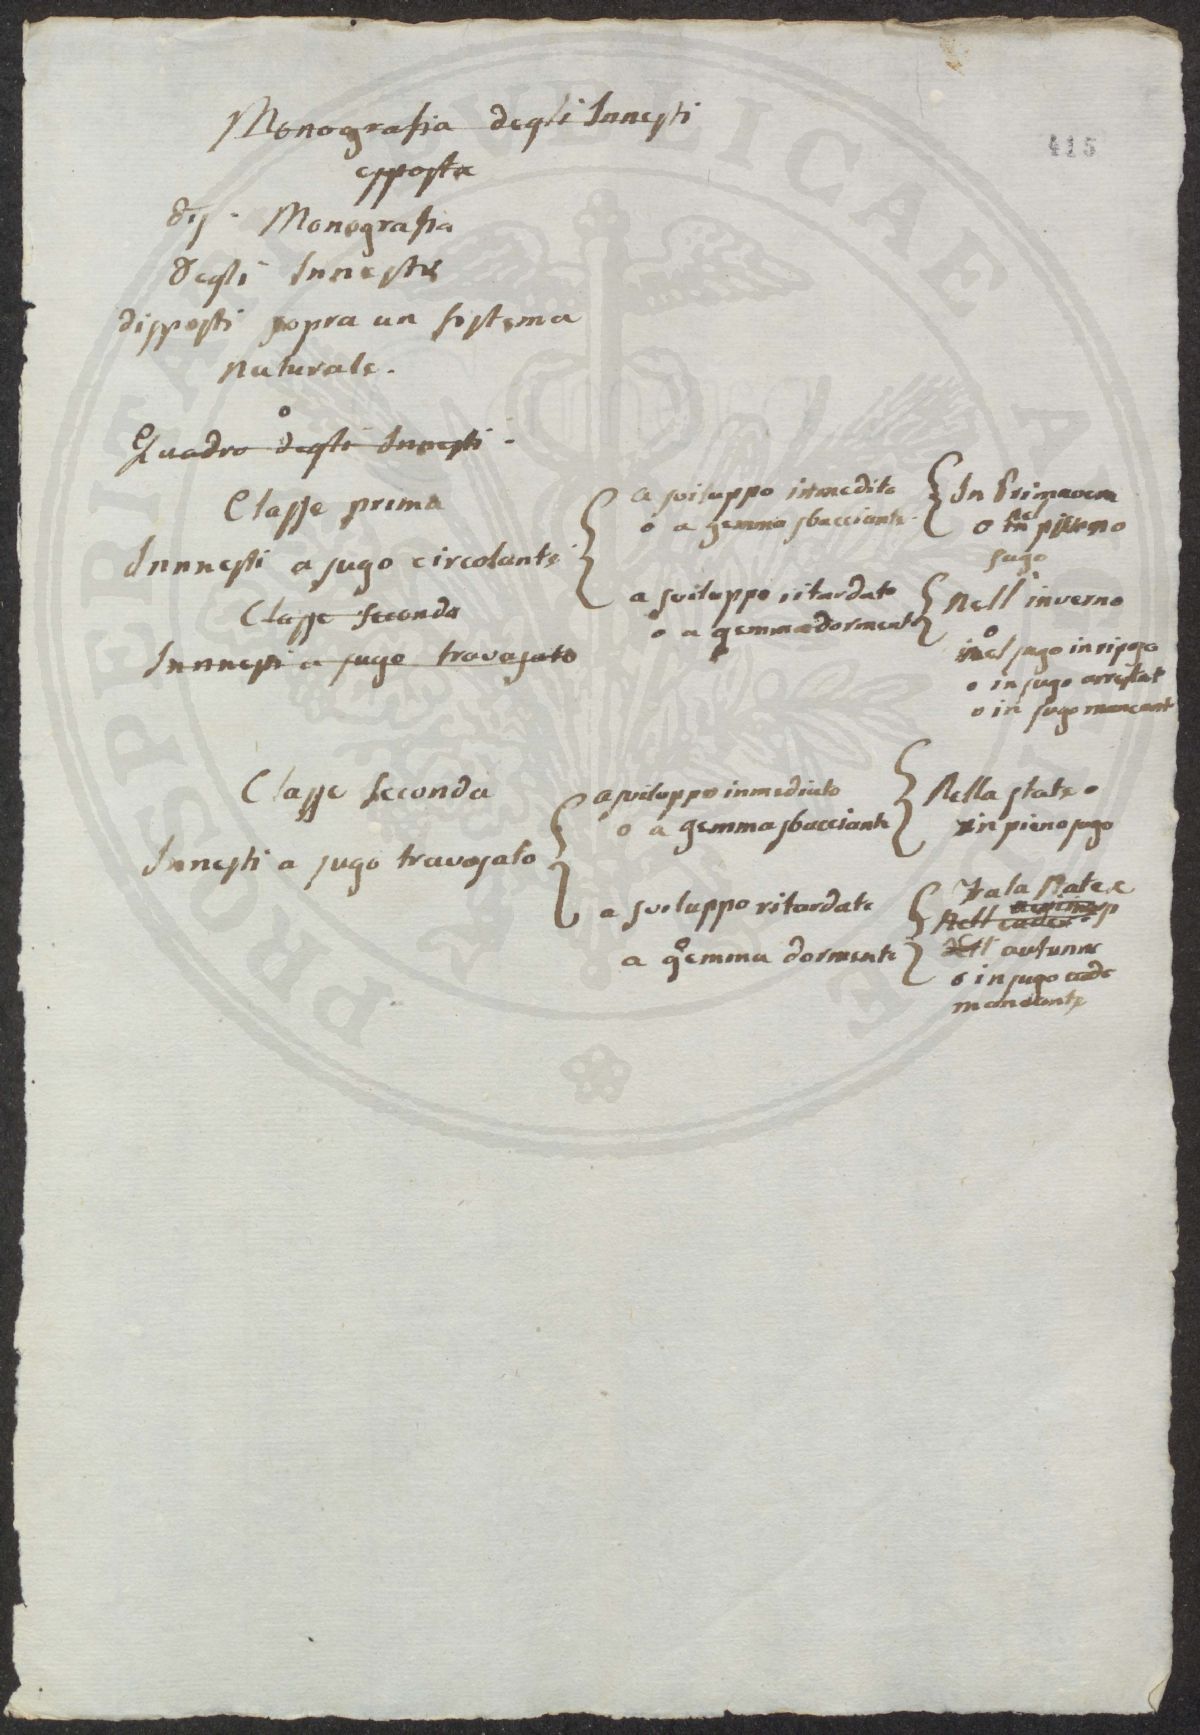 Monografia degli Innesti
esposta
Monografia
degli Innesti
disposti sopra un sistema
naturale.
415
o
Quadro degli Innesti.
Classe prima
Innnesti a sugo circolante
Classe seconda
Innnesti a sugo travasato
a sviluppo immedito
o a gemma sbocciante.
In Primavera
o in nel pieno
sugo
a sviluppo ritardato
o a gemma dormente
Nell'inverno
o
nel sugo in riposo
o in sugo arrestat
o in sugo mancant
Classe seconda
Innesti a sugo travasato
a sviluppo inmediato
o a gemma sbocciante
Nella state o
in pieno sugo
a sviluppo ritardato
o
a gemma dormente
Fa la state e
Nell cader
dell autunn
o in sugo
mancante
PROSPERITATI PUBLICAE AUGENDAE